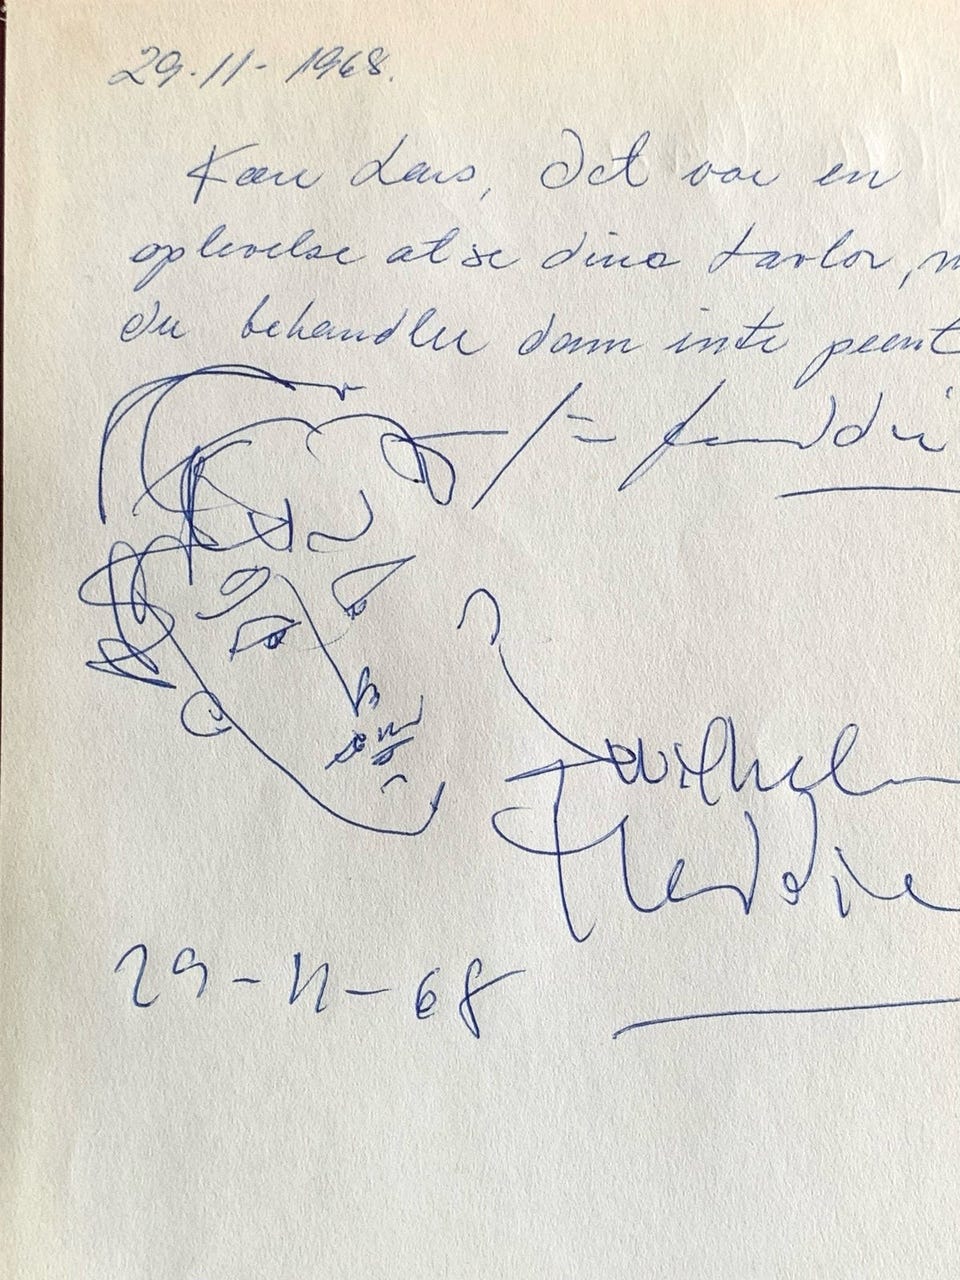 29-11-1968.
Kære Lars, Det var en
oplevelse at se dina tavlor,
du behandler dem inte pænt
Wilhelm
Freddie
29-11-68